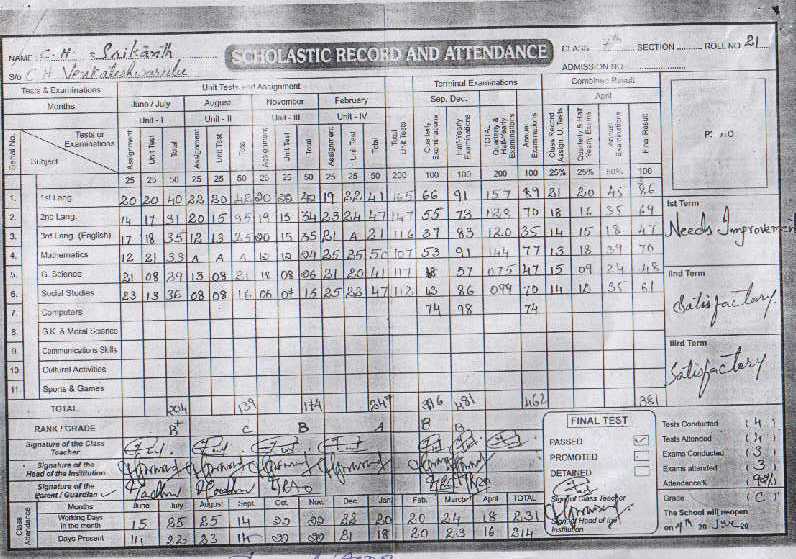 SCHOLASTIC RECORD AND ATTENDANCE
NAME : C. H. Srikanth CLASS 7th SECTION ROLL NO 21
S/o C H Venkateshwarulu ADMISSION NO
Tests & Examinations Unit Tests and Assignment Terminal Examinations Combined Result
Months June / July August November February Sep. Dec. April
Unit - I Unit - II Unit - III Unit - IV
Serial No. Tests or Examinations Subject
Assignment Unit Test Total Assignment Unit Test Assignment Unit Test Total Assignment Unit Test Total Total Unit Tests Quarterly Examinations Half-Yearly Examinations TOTAL Quarterly & Half-Yearly Examinations Annual Examinations Class Record Assign. U. Tests Quarterly & Half Yearly Exams Annual Examinations Final Result
25 25 50 25 25 50 25 25 50 25 25 50 200 100 100 200 100 25% 25% 50% 100
1. 1st Lang. 20 20 40 22 20 42 20 20 40 19 22 41 165 66 91 157 89 21 20 45 86
2. 2nd Lang. 14 17 31 20 15 19 15 34 23 24 47 147 55 73 128 70 18 16 35 69
3. 3rd Lang. (English) 17 18 35 12 13 25 20 15 35 21 A 21 116 37 83 120 35 14 15 18 47
4. Mathematics 12 21 33 A A A 25 25 50 107 53 91 144 77 13 18 39 70
5. G. Science 21 08 29 13 08 21 18 08 21 20 41 117 18 57 075 47 15 09 24 48
6. Social Studies 23 13 36 08 08 16 15 25 22 47 112 13 86 099 70 14 12 35 61
7. Computers 74 98 74
8. G.K. & Moral Science
9. Communications Skills
10. Cultural Activities
11. Sports & Games
TOTAL 204 139 174 247 481 462 381
RANK / GRADE B+ C B A B B
Signature of the Class Teacher
Signature of the Head of the Institution
Signature of the Parent / Guardian
1st Term
Needs Improvement
IInd Term
Satisfactory
IIIrd Term
Satisfactory
FINAL TEST
PASSED
PROMOTED
DETAINED
Sign of Class Teacher
Sign of Head of the Institution
Tests Conducted ( 4 )
Tests Attended ( 4 )
Exams Conducted ( 3 )
Exams attended ( 3 )
Grade ( C )
The School will reopen
on 20 June 20
Class Attendance Months June July August Sept. Oct. Nov. Dec. Jan. Feb. March April TOTAL
Working Days in the month 15 25 25 14 20 20 22 20 20 24 18 231
Days Present 14 22 23 14 20 20 21 18 20 23 16 214